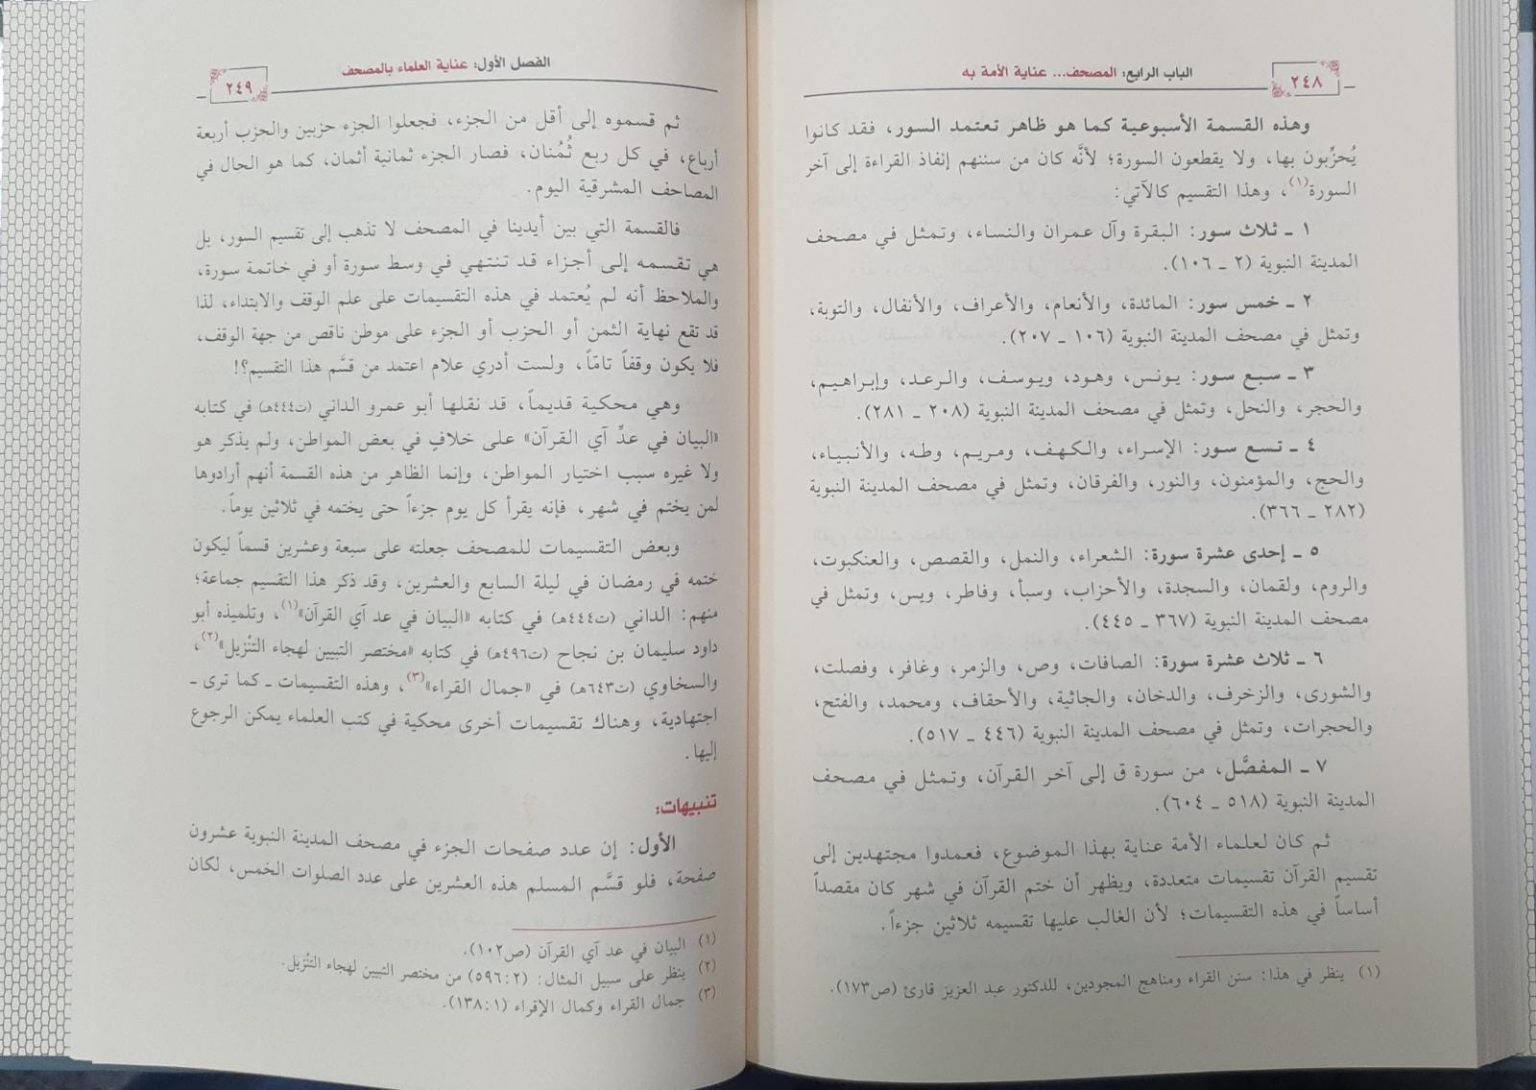 ٢٤٨
الباب الرابع: المصحف... عناية الأمة به
وهذه القسمة الأسبوعية كما هو ظاهر تعتمد السور، فقد كانوا
يُحزِّبون بها، ولا يقطعون السورة؛ لأنَّه كان من سننهم إنفاذ القراءة إلى آخر
السورة(١)، وهذا التقسيم كالآتي:
١ ـ ثلاث سور: البقرة وآل عمران والنساء، وتمثل في مصحف
المدينة النبوية (٢ ـ ١٠٦).
٢ ـ خمس سور: المائدة، والأنعام، والأعراف، والأنفال، والتوبة،
وتمثل في مصحف المدينة النبوية (١٠٦ ـ ٢٠٧).
٣ ـ سبع سور: يونس، وهود، ويوسف، والرعد، وإبراهيم،
والحجر، والنحل، وتمثل في مصحف المدينة النبوية (٢٠٨ ـ ٢٨١).
٤ ـ تسع سور: الإسراء، والكهف، ومريم، وطه، والأنبياء،
والحج، والمؤمنون، والنور، والفرقان، وتمثل في مصحف المدينة النبوية
(٢٨٢ ـ ٣٦٦).
٥ ـ إحدى عشرة سورة: الشعراء، والنمل، والقصص، والعنكبوت،
والروم، ولقمان، والسجدة، والأحزاب، وسبأ، وفاطر، ويس، وتمثل في
مصحف المدينة النبوية (٣٦٧ ـ ٤٤٥).
٦ ـ ثلاث عشرة سورة: الصافات، وص، والزمر، وغافر، وفصلت،
والشورى، والزخرف، والدخان، والجاثية، والأحقاف، ومحمد، والفتح،
والحجرات، وتمثل في مصحف المدينة النبوية (٤٤٦ ـ ٥١٧).
٧ ـ المفصَّل، من سورة ق إلى آخر القرآن، وتمثل في مصحف
المدينة النبوية (٥١٨ ـ ٦٠٤).
ثم كان لعلماء الأمة عناية بهذا الموضوع، فعمدوا مجتهدين إلى
تقسيم القرآن تقسيمات متعددة، ويظهر أن ختم القرآن في شهر كان مقصداً
أساساً في هذه التقسيمات؛ لأن الغالب عليها تقسيمه ثلاثين جزءاً.
(١) ينظر في هذا: سنن القراء ومناهج المجودين، للدكتور عبد العزيز قارئ (ص١٧٣).
الفصل الأول: عناية العلماء بالمصحف
٢٤٩
ثم قسموه إلى أقل من الجزء، فجعلوا الجزء حزبين والحزب أربعة
أرباع، في كل ربع ثُمُنان، فصار الجزء ثمانية أثمان، كما هو الحال في
المصاحف المشرقية اليوم.
فالقسمة التي بين أيدينا في المصحف لا تذهب إلى تقسيم السور، بل
هي تقسمه إلى أجزاء قد تنتهي في وسط سورة أو في خاتمة سورة،
والملاحظ أنه لم يُعتمد في هذه التقسيمات على علم الوقف والابتداء، لذا
قد تقع نهاية الثمن أو الحزب أو الجزء على موطن ناقص من جهة الوقف،
فلا يكون وقفاً تامّاً، ولست أدري علام اعتمد من قسَّم هذا التقسيم؟!
وهي محكية قديماً، قد نقلها أبو عمرو الداني (ت٤٤٤هـ) في كتابه
«البيان في عدِّ آي القرآن» على خلافٍ في بعض المواطن، ولم يذكر هو
ولا غيره سبب اختيار المواطن، وإنما الظاهر من هذه القسمة أنهم أرادوها
لمن يختم في شهر، فإنه يقرأ كل يوم جزءاً حتى يختمه في ثلاثين يوماً.
وبعض التقسيمات للمصحف جعلته على سبعة وعشرين قسماً ليكون
ختمه في رمضان في ليلة السابع والعشرين، وقد ذكر هذا التقسيم جماعة؛
منهم: الداني (ت٤٤٤هـ) في كتابه «البيان في عد آي القرآن»(١)، وتلميذه أبو
داود سليمان بن نجاح (ت٤٩٦هـ) في كتابه «مختصر التبيين لهجاء التنْزيل»(٢)،
والسخاوي (ت٦٤٣هـ) في «جمال القراء»(٣)، وهذه التقسيمات ـ كما ترى ـ
اجتهادية، وهناك تقسيمات أخرى محكية في كتب العلماء يمكن الرجوع
إليها.
تنبيهات:
الأول: إن عدد صفحات الجزء في مصحف المدينة النبوية عشرون
صفحة، فلو قسَّم المسلم هذه العشرين على عدد الصلوات الخمس، لكان
(١) البيان في عد آي القرآن (ص١٠٢).
(٢) ينظر على سبيل المثال: (٢: ٥٩٦) من مختصر التبيين لهجاء التنْزيل.
(٣) جمال القراء وكمال الإقراء (١: ١٣٨).